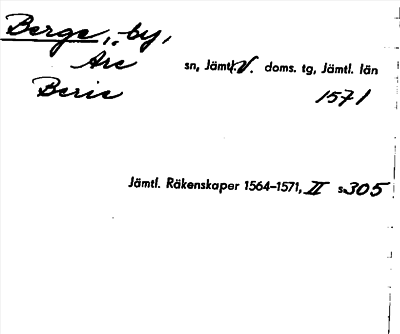 Berge, by,
Åre sn, Jämtl. V. doms. tg, Jämtl. län
Berie 1571
Jämtl. Räkenskaper 1564-1571, II s. 305